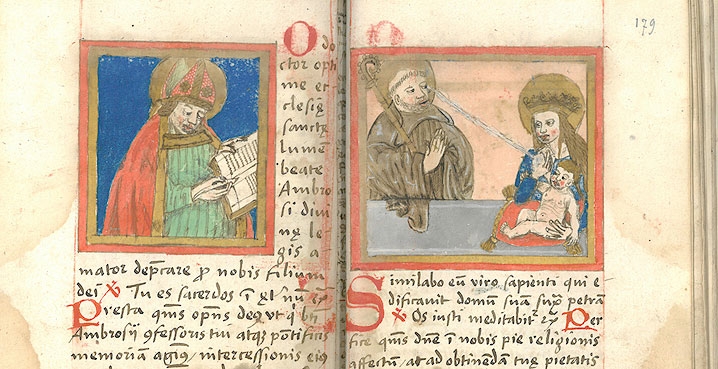 O do
ctor opti
me ec
clesię
sanctę
lumen
beate
Ambro
si divi
nę le
gis a
mator dep̄care p̄ nobis filium
dei ℣ Tu es sacerdos ī ęt̄nū
Presta qm̄s opn̄s deꝰ vt q̇ bt̄i
Ambrosij ꝯfessoris tui atqꝫ pontificis
memoriam agimꝰ / intercessionis eiꝰ
179
Similabo eū viro sapienti qui e
dificavit domū suā sup̄ petrā
℣ Os iusti meditabit᷑ ℟ Per
fice qm̄s dn̄e ī nobis pie religionis
affectū / ac ad obtinendā tuę pietatis